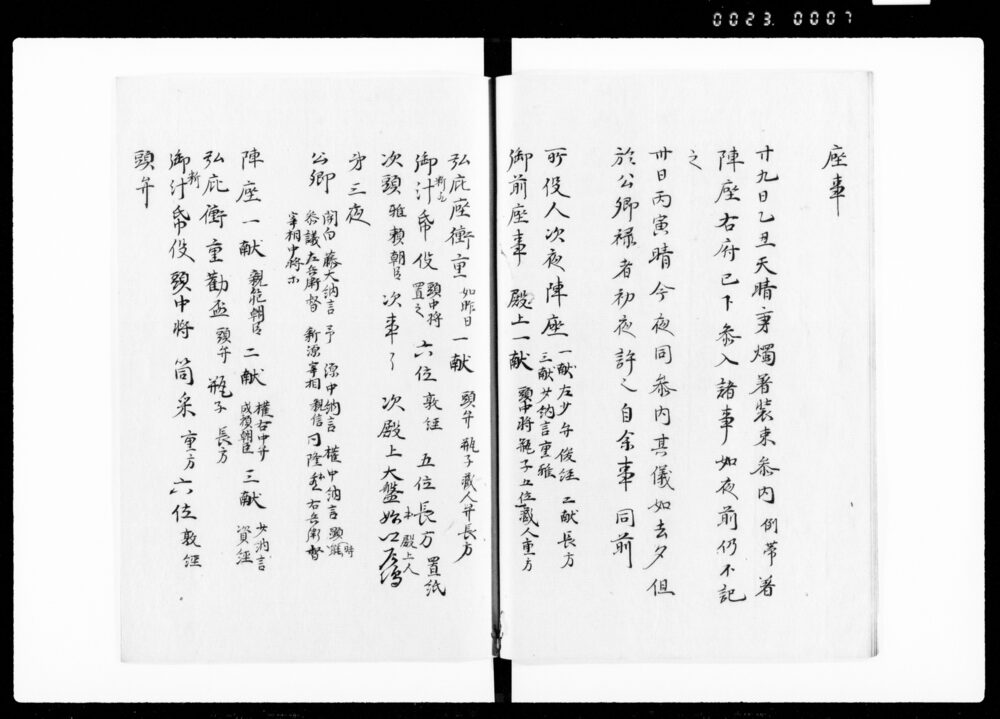 0023.0007
座事
廿九日乙丑天晴秉燭著装束参内 例帯著
陣座右府已下参入諸事如夜前仍不記
之
卅日丙寅晴今夜同参内其儀如去夕但
於公卿禄者初夜許之自余事同前
所役人次夜陣座 一献左少弁俊経 二献長方
三献少納言重雅
御前座事 殿上一献 頭中将 瓶子五位蔵人重方
弘庇座衝重 如昨日 一献 頭弁 瓶子蔵人弁長方
御汁帋役 頭中将 置之 六位敦経 五位長方 置紙
次頭雅頼朝臣 次事了 次殿上大盤
殿上人
第三夜
公卿 関白 藤大納言 予 源中納言 権中納言 顕時
参議左兵衛督 新源宰相 親信 同隆 右兵衛督
宰相中将
陣座一献 親範朝臣 二献 権右中弁 成頼朝臣 三献 少納言 資経
弘庇衝重勧盃 頭弁 瓶子 長方
御汁帋役頭中将 筒采 重方 六位敦経
頭弁